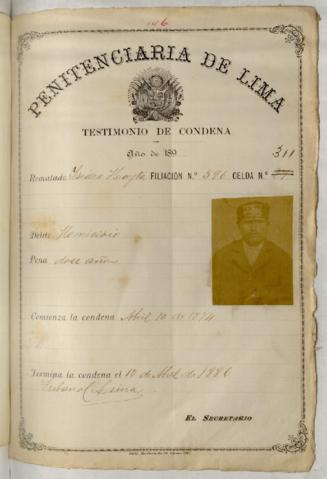 146
PENITENCIARIA DE LIMA
TESTIMONIO DE CONDENA
Año de 189
311
Rematado Isidro FILIACIÓN N.° 596 CELDA N.°
Delito Homicidio
Pena doce años
Comienza la condena Abril 10 de 1874
Termina la condena el 10 de Abril de 1886
Tribunal Lima
EL SECRETARIO